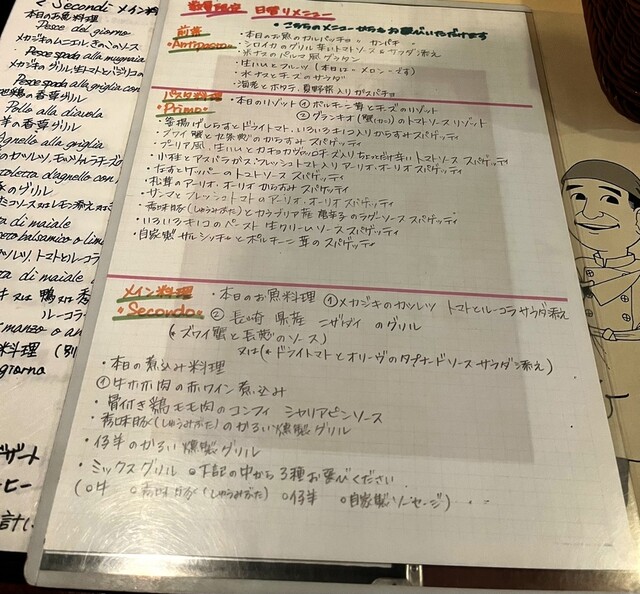 数量限定 日替りメニュー
・こちらのメニューからもお選びいただけます
前菜
"Antipasto"
・本日のお魚のカルパッチョ カンパチ
・シロイカのグリル 辛いトマトソース ルッコラ添え
・水ナスのパルマ風グラタン
・生ハムとフルーツ (本日は メロン です)
・水ナスとチーズのサラダ
・海老とホタテ、夏野菜入りガスパチョ
パスタ料理
"Primo"
・本日のリゾット ①ポルチーニ茸とチーズのリゾット
②グランキオ(蟹)のトマトソースリゾット
・釜揚げしらすとドライトマト、いろいろキノコ入りからすみスパゲッティ
・ズワイ蟹と のからすみ スパゲッティ
・プーリア風、生ハムとカチョカヴァロチーズ入りちょっとだけ辛いトマトソース スパゲッティ
・小柱とアスパラガス・フレッシュトマト入りアーリオ・オーリオ スパゲッティ
・なすとケッパーのトマトソース スパゲッティ
・松茸のアーリオ・オーリオ からすみ スパゲッティ
・サンマとフレッシュトマトのアーリオ・オーリオ スパゲッティ
・ (しゅうみがた)とカラブリア産 唐辛子のラグーソース スパゲッティ
・いろいろキノコのペースト 生クリームソース スパゲッティ
・自家製 サルシッチャとポルチーニ茸のスパゲッティ
メイン料理
"Secondo"
・本日のお魚料理 ①メカジキのカツレツ トマトとルーコラサラダ添え
②長崎県産 ニザダイ のグリル
(*ズワイ蟹と長葱のソース)
又は(*ドライトマトとオリーヴのタプナードソース サラダ添え)
・本日の煮込み料理
①牛ホホ肉の赤ワイン煮込み
・骨付き鶏モモ肉のコンフィ シャリアピンソース
・ (しゅうみがた)のかるい燻製グリル
・仔羊のかるい燻製グリル
・ミックスグリル ○下記の中から3種お選びください
(○牛 ○ (しゅうみがた) ○仔羊 ○自家製ソーセージ)
Secondi メイン料理
本日のお魚料理
Pesce del giorno
メカジキのムニエル きのこのソース
Pesce spada alla mugnaia
メカジキのグリル 生トマトとバジリコの
Pesce spada alla griglia con
鶏の香草グリル
Pollo alla diavola
の香草グリル
Agnello alla griglia
のカツレツ、モッツァレラチーズ
d'agnello con
のグリル
ta di maiale
balsamico o limo
カツレツ、トマトとルーコラ
ta di maiale
manzo o an
giorno
デザート